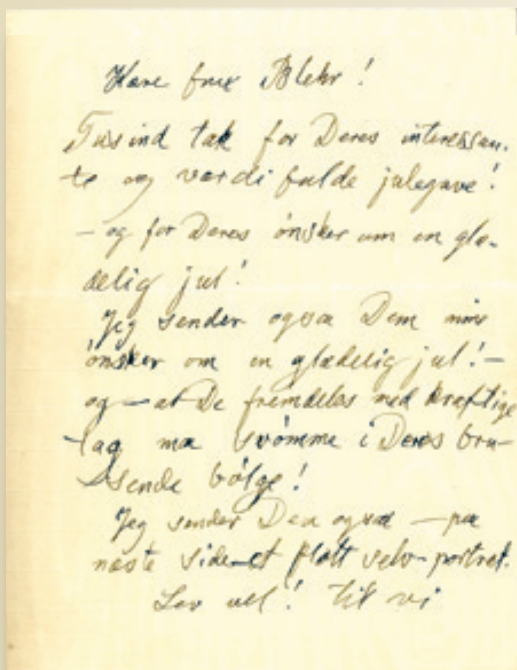 Kære frue Blehr!
Tusind tak for Deres interessan-
te og værdifulde julegave!
– og for Deres ønsker om en glæ-
delig jul!
Jeg sender ogsaa Dem mine
ønsker om en glædelig jul! –
og – at De fremdeles med kraftige
tag maa svømme i Deres bru-
sende bølge!
Jeg sender Dem ogsaa – paa
næste side – et flott selv-portræt.
Lev vel! til vi